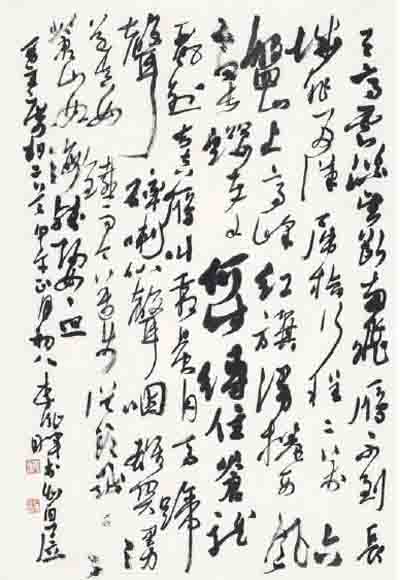 天高雲淡望斷南飛雁不到長
城非好漢屈指行程二万六
盤山上高峰紅旗漫捲西風
今日長纓在手何時縛住蒼龍
西風烈長空雁叫霜晨月馬蹄
聲碎喇叭聲咽雄關漫
道真如鐵而今邁步從頭越
蒼山如海殘陽如血
詞二首甲午正月初八李